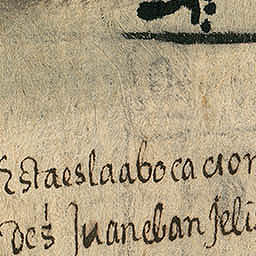 Estaeslaabocacion
des Juanebanjelis